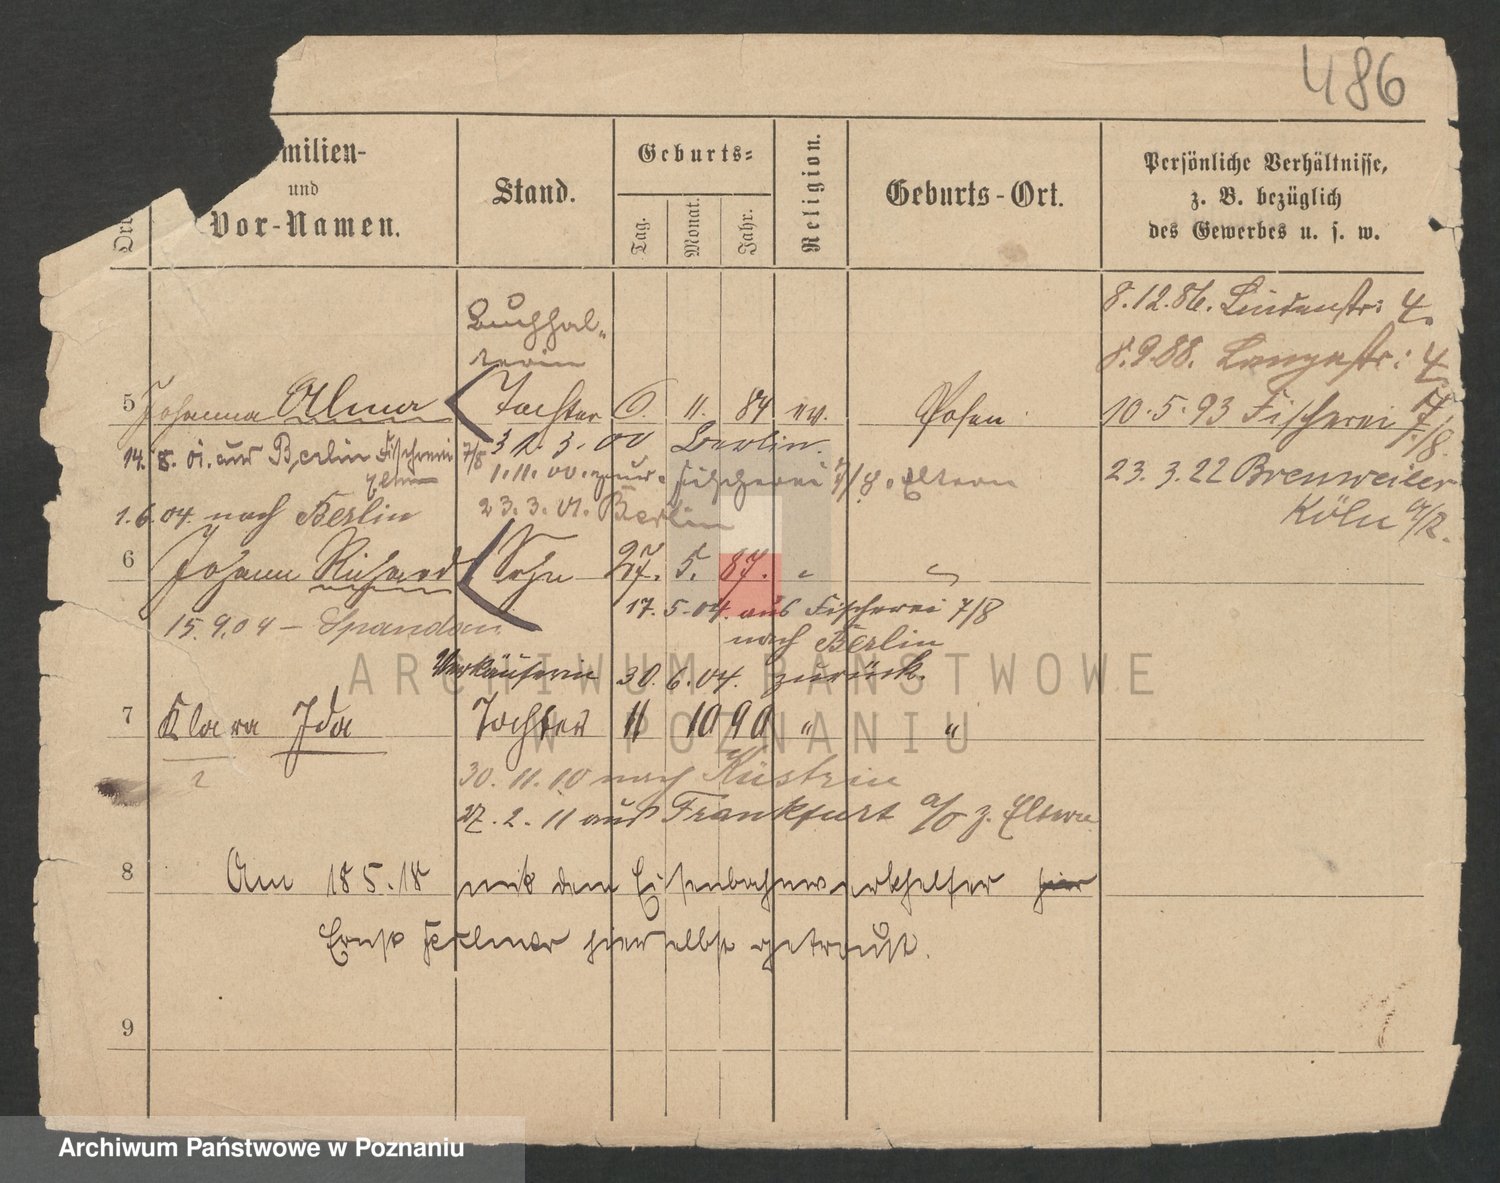 486
milien-
und
Vor-Namen.
Stand.
Geburts-
Tag.
Monat.
Jahr.
Religion.
Geburts-Ort.
Persönliche Verhältnisse,
z. B. bezüglich
des Gewerbes u. s. w.
8.12.86. Lindenstr: 4.
Buchhal-
terin
8.9.88. Langestr: 4.
5 Johanna Alma Tochter 6. 11. 84 ev. Posen 10.5.93 Fischerei 7/8.
14. 8. 01. aus Berlin Fischerei 7/8 31. 3. 00 Berlin.
1.11.00. zur. Fischerei 7/8. Eltern 23. 3. 22 Brenweiler
1.6.04. nach Berlin 23. 3. 01. Berlin Köln a/R.
6 Johann Richard Sohn 27. 5. 87. "
17.5.04. aus Fischerei 7/8
15.9.04 - Spandau nach Berlin
Verkäuferin 30.6.04. zurück.
7 Klara Ida Tochter 11 10 90 " "
30.11.10 nach Küstrin
27.2.11 aus Frankfurt a/O z. Eltern
8 Am 18 5.18 mit dem Eisenbahnwerkhelfer hier
Ernst hierselbst getraut.
9
ARCHIWUM PAŃSTWOWE
W POZNANIU
Archiwum Państwowe w Poznaniu